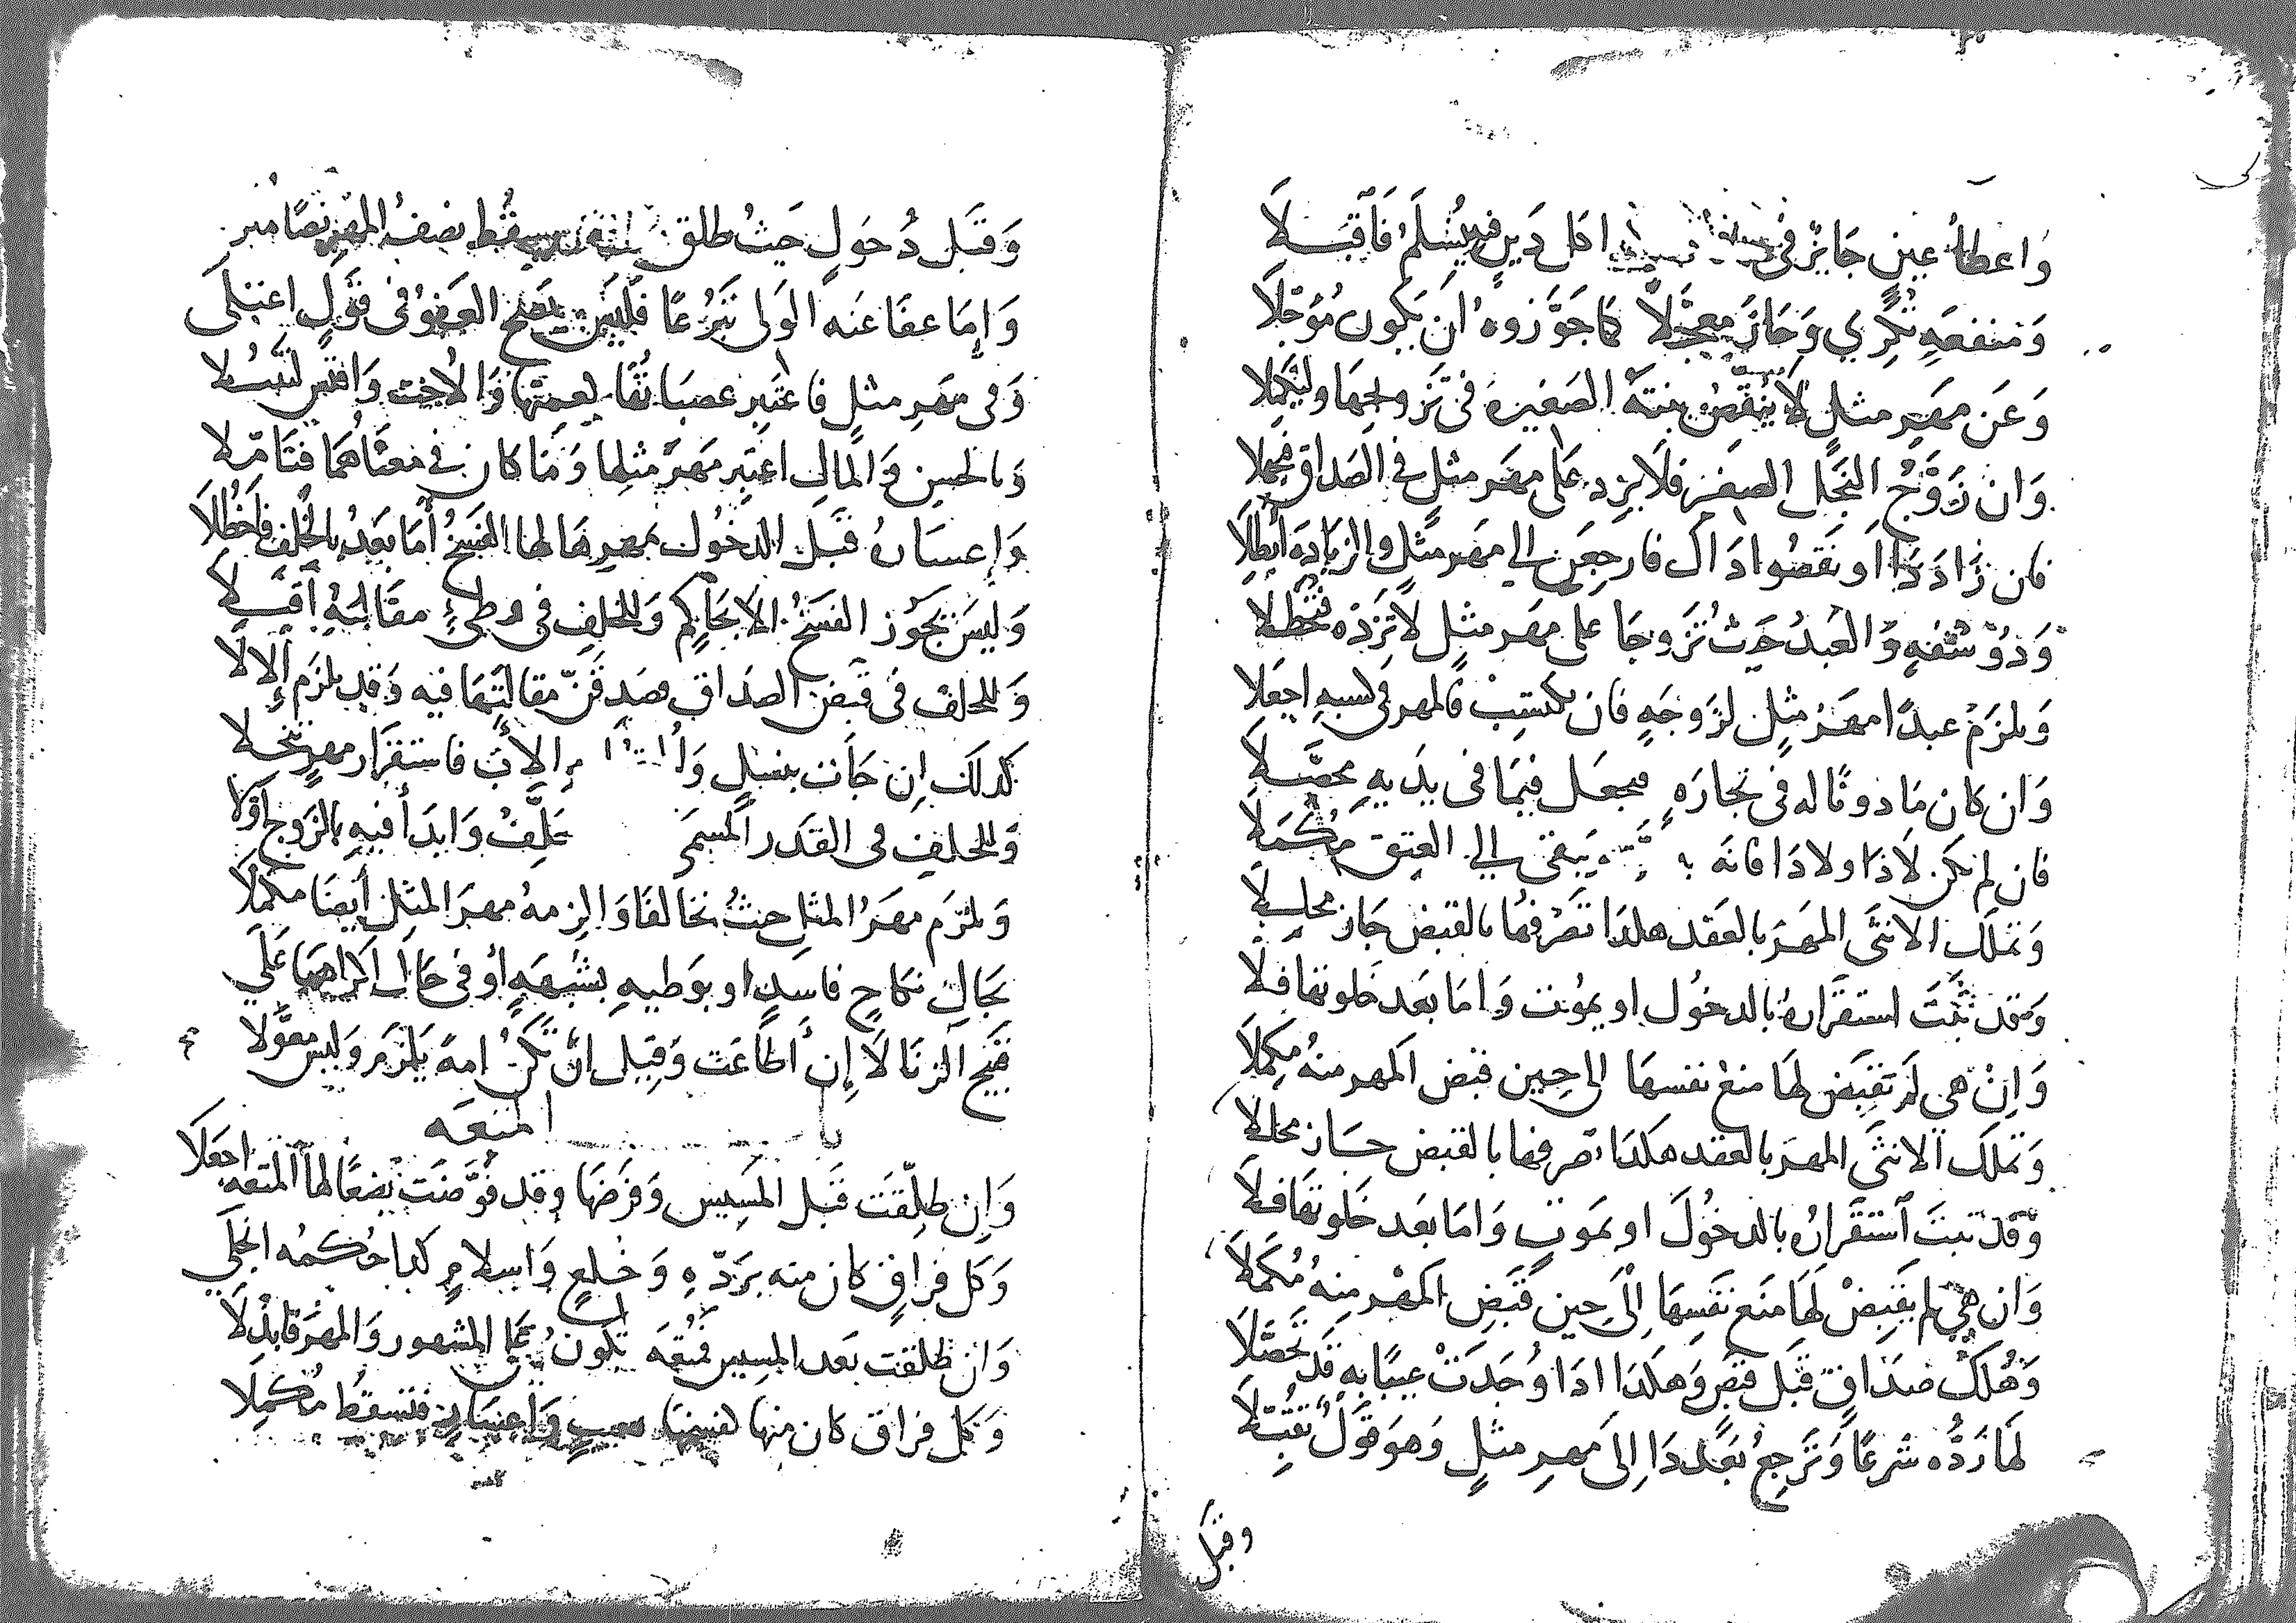 وَاعطاءُ عينٍ جَايزٌ في اذل دَينٍ فَآقبَلَا
وَمنفعَهٍ تُكرِي وَجَازَ معجَّلاً كما جَوَّزوهُ ان يكون مُؤجَّلَا
وَعَن مهَرِ مثلٍ لَا يُنقصُ بنتهَ الصَغيرةَ في تَزوِيجهَا وليُكمِلا
وَان زَوَّجُ النجَل الصغير فلَا يزد عَلى مهَر مثلٍ في الصَداق
فان زَادَ دَا اَو نَقصُوا دَاك فارجِعَن الي مهَر مثَلٍ والزيادَه أَبطلَا
وَذوُ سَفهٍ وَالعَبدُ حَيث تَزوجَا على مهَر مثلٍ لا تَزدْه
وَيلزمُ عبدًا مهَرُ مثلٍ لزَوجَهٍ فان يكتسِبْ فالمهر في كسبهِ اجعَلا
وَان كان مَاذونًا له في تجارَهٍ فيجعَل فيمَا في يدَيهِ محَصَّلَا
فان لم يكن لَا ذَا ولا دَا فانهَ يَبقى الي العتِق مُكمَلَا
وَتملك الانثَى المهَرَ بالعَقد هكذا تصَرفها بالقبض جَاز محللَا
وَقد ثبتَ استقَرارهُ بالدخُول او بموت وَامَا بعَد خَلوتها فلَا
وَاِنْ هي لَم تقبَض لهَا منع نفسهَا الى حِين قبض المهر منهُ مكمِلَا
وَتملَك الانثَى المهرَ بالعقد هكذا تصرفها بالقبض جَاز محللا
وَقد ثبتَ اَستقَرارُه بالدخُول او بمَوتٍ وَامَا بعَد خَلوتهَا فلَا
وَان هي لم يقَبضْ لهَا منَع نفَسِهَا الَى حِين قَبَضِ المهْر منهُ مُكمَلَا
وَهُلكُ صَدَاقٍ قبَل قبضٍ وَهكذا اذَا وُجدَتْ عيبًا بهِ قَد تحصَّلَا
لهَا رَدُّه شرعًا وَترجعُ بعَد دَا اِلىَ مهرِ مثلٍ وَهوَ قوَلٌ
وقبَل
وَقبَل دُخولٍ حَيثُ طلق يسقُط نصفُ المهَرِ نصًا
وَاِمَا عفَا عَنه الوَلى تبَرُعًا فلَيسَ يصَح العَفوُ في قَولٍ اعتلَى
وَفي مهَرِ مثلٍ فاعتَبِر عصبَاتهَا لعمتها وَالاخت وَاقتسِ
وَبالحسن وَالمَالِ اعتبر مَهرَ مثلِها وَمَا كان في معنَاهُمَا فتَامّلا
وَاِعسَارهُ قبَل الدخُول بمهرِهَا لها الفَسخُ أَمَا بعَدُ بالخُلفِ فاحُظلَا
وَليسَ يجَوُز الفسَخُ الَا بحَاكمٍ وَالخلفِ في وطئٍ مقالتهُ آقبلَا
وَللخلف في قبَض الصدَاق فصَدقنّ مقالتهَا فيه وَقد يلزَم اَلالا
كذلك اِن جَاَت بنسلٍ الاَب فاستقرَار مهرٍ تنخلا
وَالخلفِ في القدَر المسمَى حَلِّفْ وَابدَأ فيهِ بالزوج
وَيلزَم مهَرُ المثلِ حيثُ تخالفَا وَالزِمهُ مهرَ المثِل أيضًا مكمَلَا
بحَالِ نكاحٍ فاسدٍ او بوَطيهِ بشُبهَةٍ اَو في حَالِ اكراههَا عَلَي
قبَيح الزنَا لَا اِن أَطَاعَت وَقِيل انْ تَكنُ امهَ يَلزَم وَليس معَوَّلا
باب المتعَه
وَاِن طلِّقَت قبَل المسَيس وَفرضهَا وقد فوَّضَت بُضعًا لها المتعَه اجعَلَا
وَكل فراقٍ كان منه برَدّهِ وَخلعٍ وَاسلامٍ كذا حُكمُه انجلَي
وَان طلقت بَعد المسيس فمُتعَه تكَون علَى المشهور وَالمهرَ فابذلَا
وَكل فراق كان منها لفسخها بعيب وَاعسَارٍ فتسقطُ مُكمِلَا